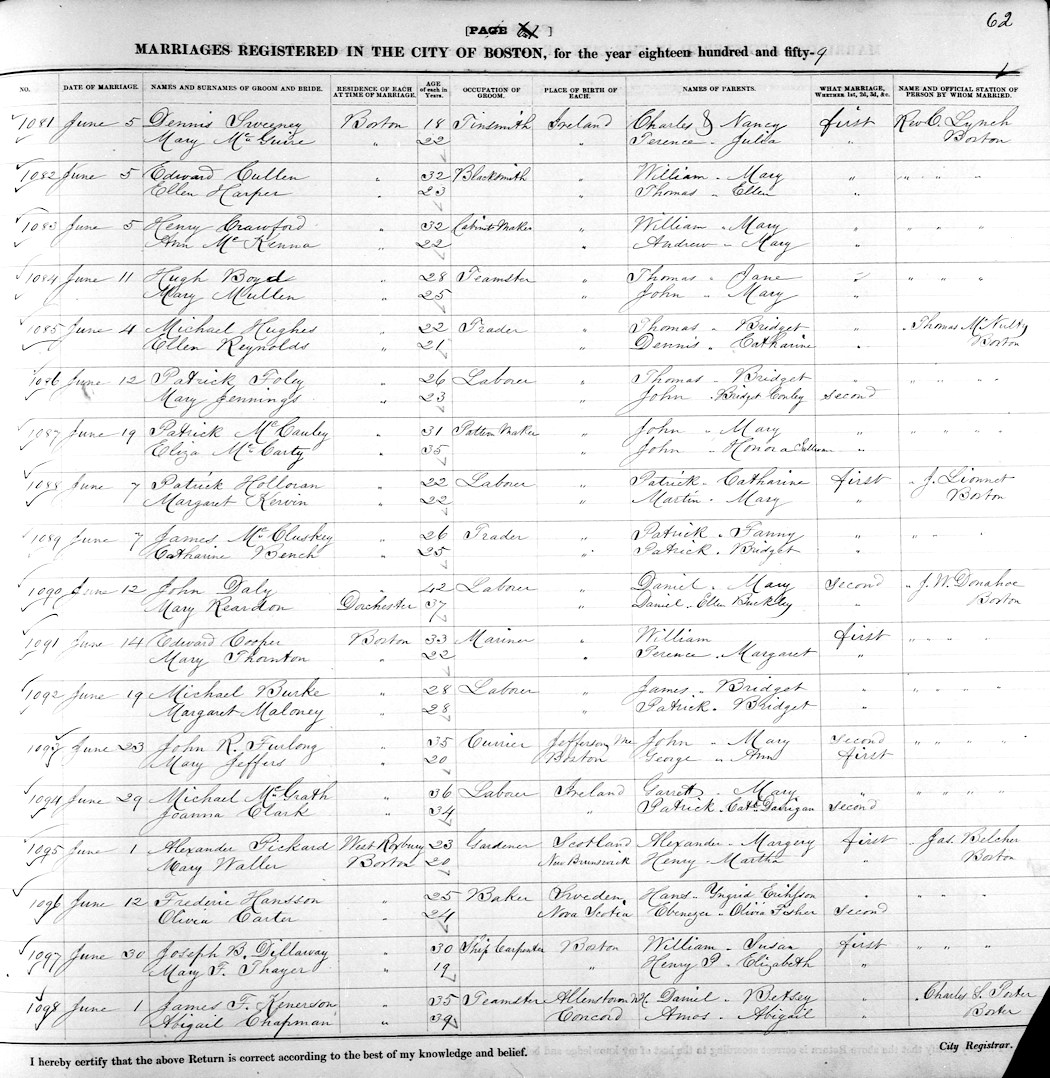 62
[PAGE ]
MARRIAGES REGISTERED IN THE CITY OF BOSTON, for the year eighteen hundred and fifty-9
NO. DATE OF MARRIAGE. NAMES AND SURNAMES OF GROOM AND BRIDE. RESIDENCE OF EACH AT TIME OF MARRIAGE. AGE of each in Years. OCCUPATION OF GROOM. PLACE OF BIRTH OF EACH. NAMES OF PARENTS. WHAT MARRIAGE, WHETHER 1st, 2d, 3d, &c. NAME AND OFFICIAL STATION OF PERSON BY WHOM MARRIED.
1081 June 5 Dennis Sweeney Boston 18 Tinsmith Ireland Charles & Nancy first Rev C. Lynch
Mary McGuire " 22 " Terence " Julia " Boston
1082 June 5 Edward Cullen " 32 Blacksmith " William " Mary " " " "
Ellen Harper " 23 " Thomas " Ellen "
1083 June 5 Henry Crawford " 32 Cabinet Maker " William " Mary " " " "
Ann McKenna " 22 " Andrew " Mary "
1084 June 11 Hugh Boyd " 28 Teamster " Thomas " Jane " " " "
Mary Mullen " 25 " John " Mary "
1085 June 4 Michael Hughes " 22 Trader " Thomas " Bridget " " Thomas McNulty
Ellen Reynolds " 21 " Dennis " Catharine " Boston
1086 June 12 Patrick Foley " 26 Laborer " Thomas " Bridget " " " "
Mary Jennings " 23 " John " Bridget Conley second
1087 June 19 Patrick McCauley " 31 Pattern Maker " John " Mary " " " "
Eliza McCarty " 35 " John " Honora Sullivan "
1088 June 7 Patrick Holloran " 22 Laborer " Patrick " Catharine first " J. Lionnet
Margaret Kervin " 22 " Martin " Mary " Boston
1089 June 7 James McCluskey " 26 Trader " Patrick " Fanny " " " "
Catharine Bench " 25 " Patrick " Bridget "
1090 June 12 John Daly " 42 Laborer " Daniel " Mary second " J. W. Donahoe
Mary Reardon Dorchester 37 " Daniel " Ellen Buckley " Boston
1091 June 14 Edward Cooper Boston 33 Mariner " William first " " " "
Mary Thornton " 22 " Terence " Margaret "
1092 June 19 Michael Burke " 28 Laborer " James " Bridget " " " "
Margaret Maloney " 28 " Patrick " Bridget "
1093 June 23 John R. Furlong " 35 Currier Jefferson Me John " Mary second " " " "
Mary Jeffers " 20 Boston George " Ann first
1094 June 29 Michael McGrath " 36 Laborer Ireland Garrett " Mary " " " "
Joanna Clark " 34 " Patrick " Cath. second
1095 June 1 Alexander Pickard West Roxbury 23 Gardener Scotland Alexander " Margery first " Jas. Belcher
Mary Waller Boston 20 New Brunswick Henry " Martha " Boston
1096 June 12 Frederic Hansson " 25 Baker Sweden Hans " Yngrid " " "
Olivia Carter " 24 Nova Scotia Ebenezer " Olivia Fisher second
1097 June 30 Joseph B. Dillaway " 30 Ship Carpenter Boston William " Susan first " "
Mary F. Thayer " 19 " Henry P. " Elizabeth "
1098 June 1 James F. Kenerson " 35 Teamster Allenstown N.H. Daniel " Betsey " " Charles S. Porter
Abigail Chapman " 39 Concord Amos " Abigail "
I hereby certify that the above Return is correct according to the best of my knowledge and belief. City Registrar.